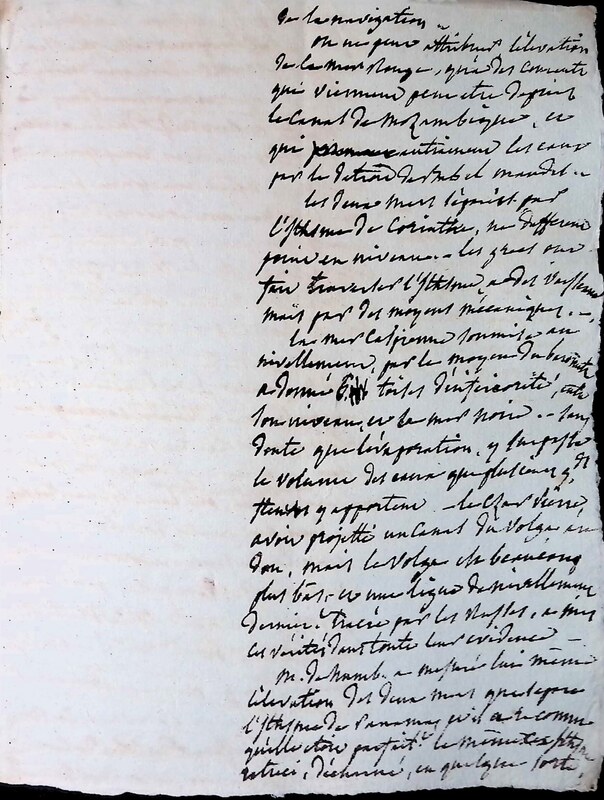 de la navigation
on ne peut attribuer l'élévation
de la mer Rouge, qu'à des courants
qui viennent peut etre depuis
le Canal de Mozambique, et
qui autrement les eaux
par le détroit de Bab el mandel. -
les deux mers séparées par
l'Isthme de Corinthe, ne different
point en niveau. - les grecs ont
fait traverser l'Isthme, a des vaisseaux
mais par des moyens mécaniques. -
la mer Caspienne soumise au
nivellement, par le moyen du barometre
a donné toises d'infériorité, entre
son niveau, et la mer noire. - sans
doute que l'évaporation, y surpasse
le volume des eaux que plusieurs gds
fleuves y apportent. - le Czar Pierre,
avoit projetté un Canal du Volga au
Don, mais le Volga est beaucoup
plus bas, et une ligne de nivellement
dernier.t tracée par les Russes, a mis
ces vérités dans toute leur évidence -
M. de humb. a mesuré lui même
l'élévation des deux mers que sépare
l'Isthme de Panama, et il a reconnu
qu'elle étoit parfait.t la même
retreci, décharné, en quelque sorte,